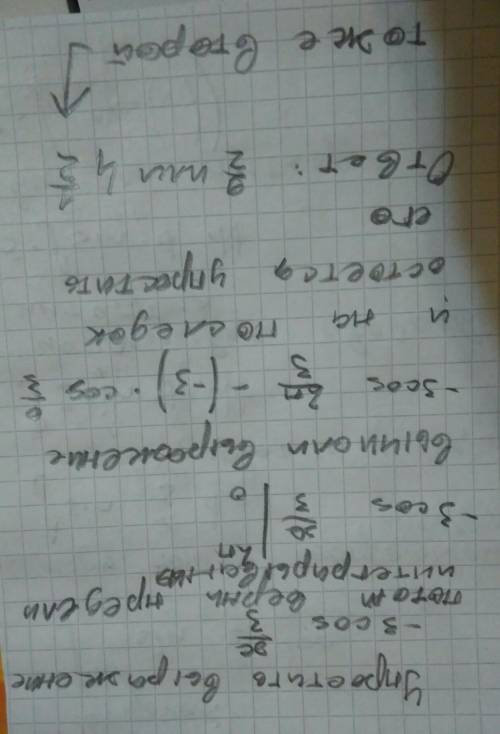 Упростить выражение
-3 cos x/3
потом верни предели
интегрирования
-3 cos x/3 | 2п 0
вычисли выражение
-3 cos 2п/3 - (-3) · cos 0/3
и на последок
остоется упростить
его
Ответ: 9/2 или 4 1/2
то же второй